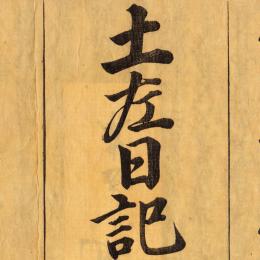 土左日記